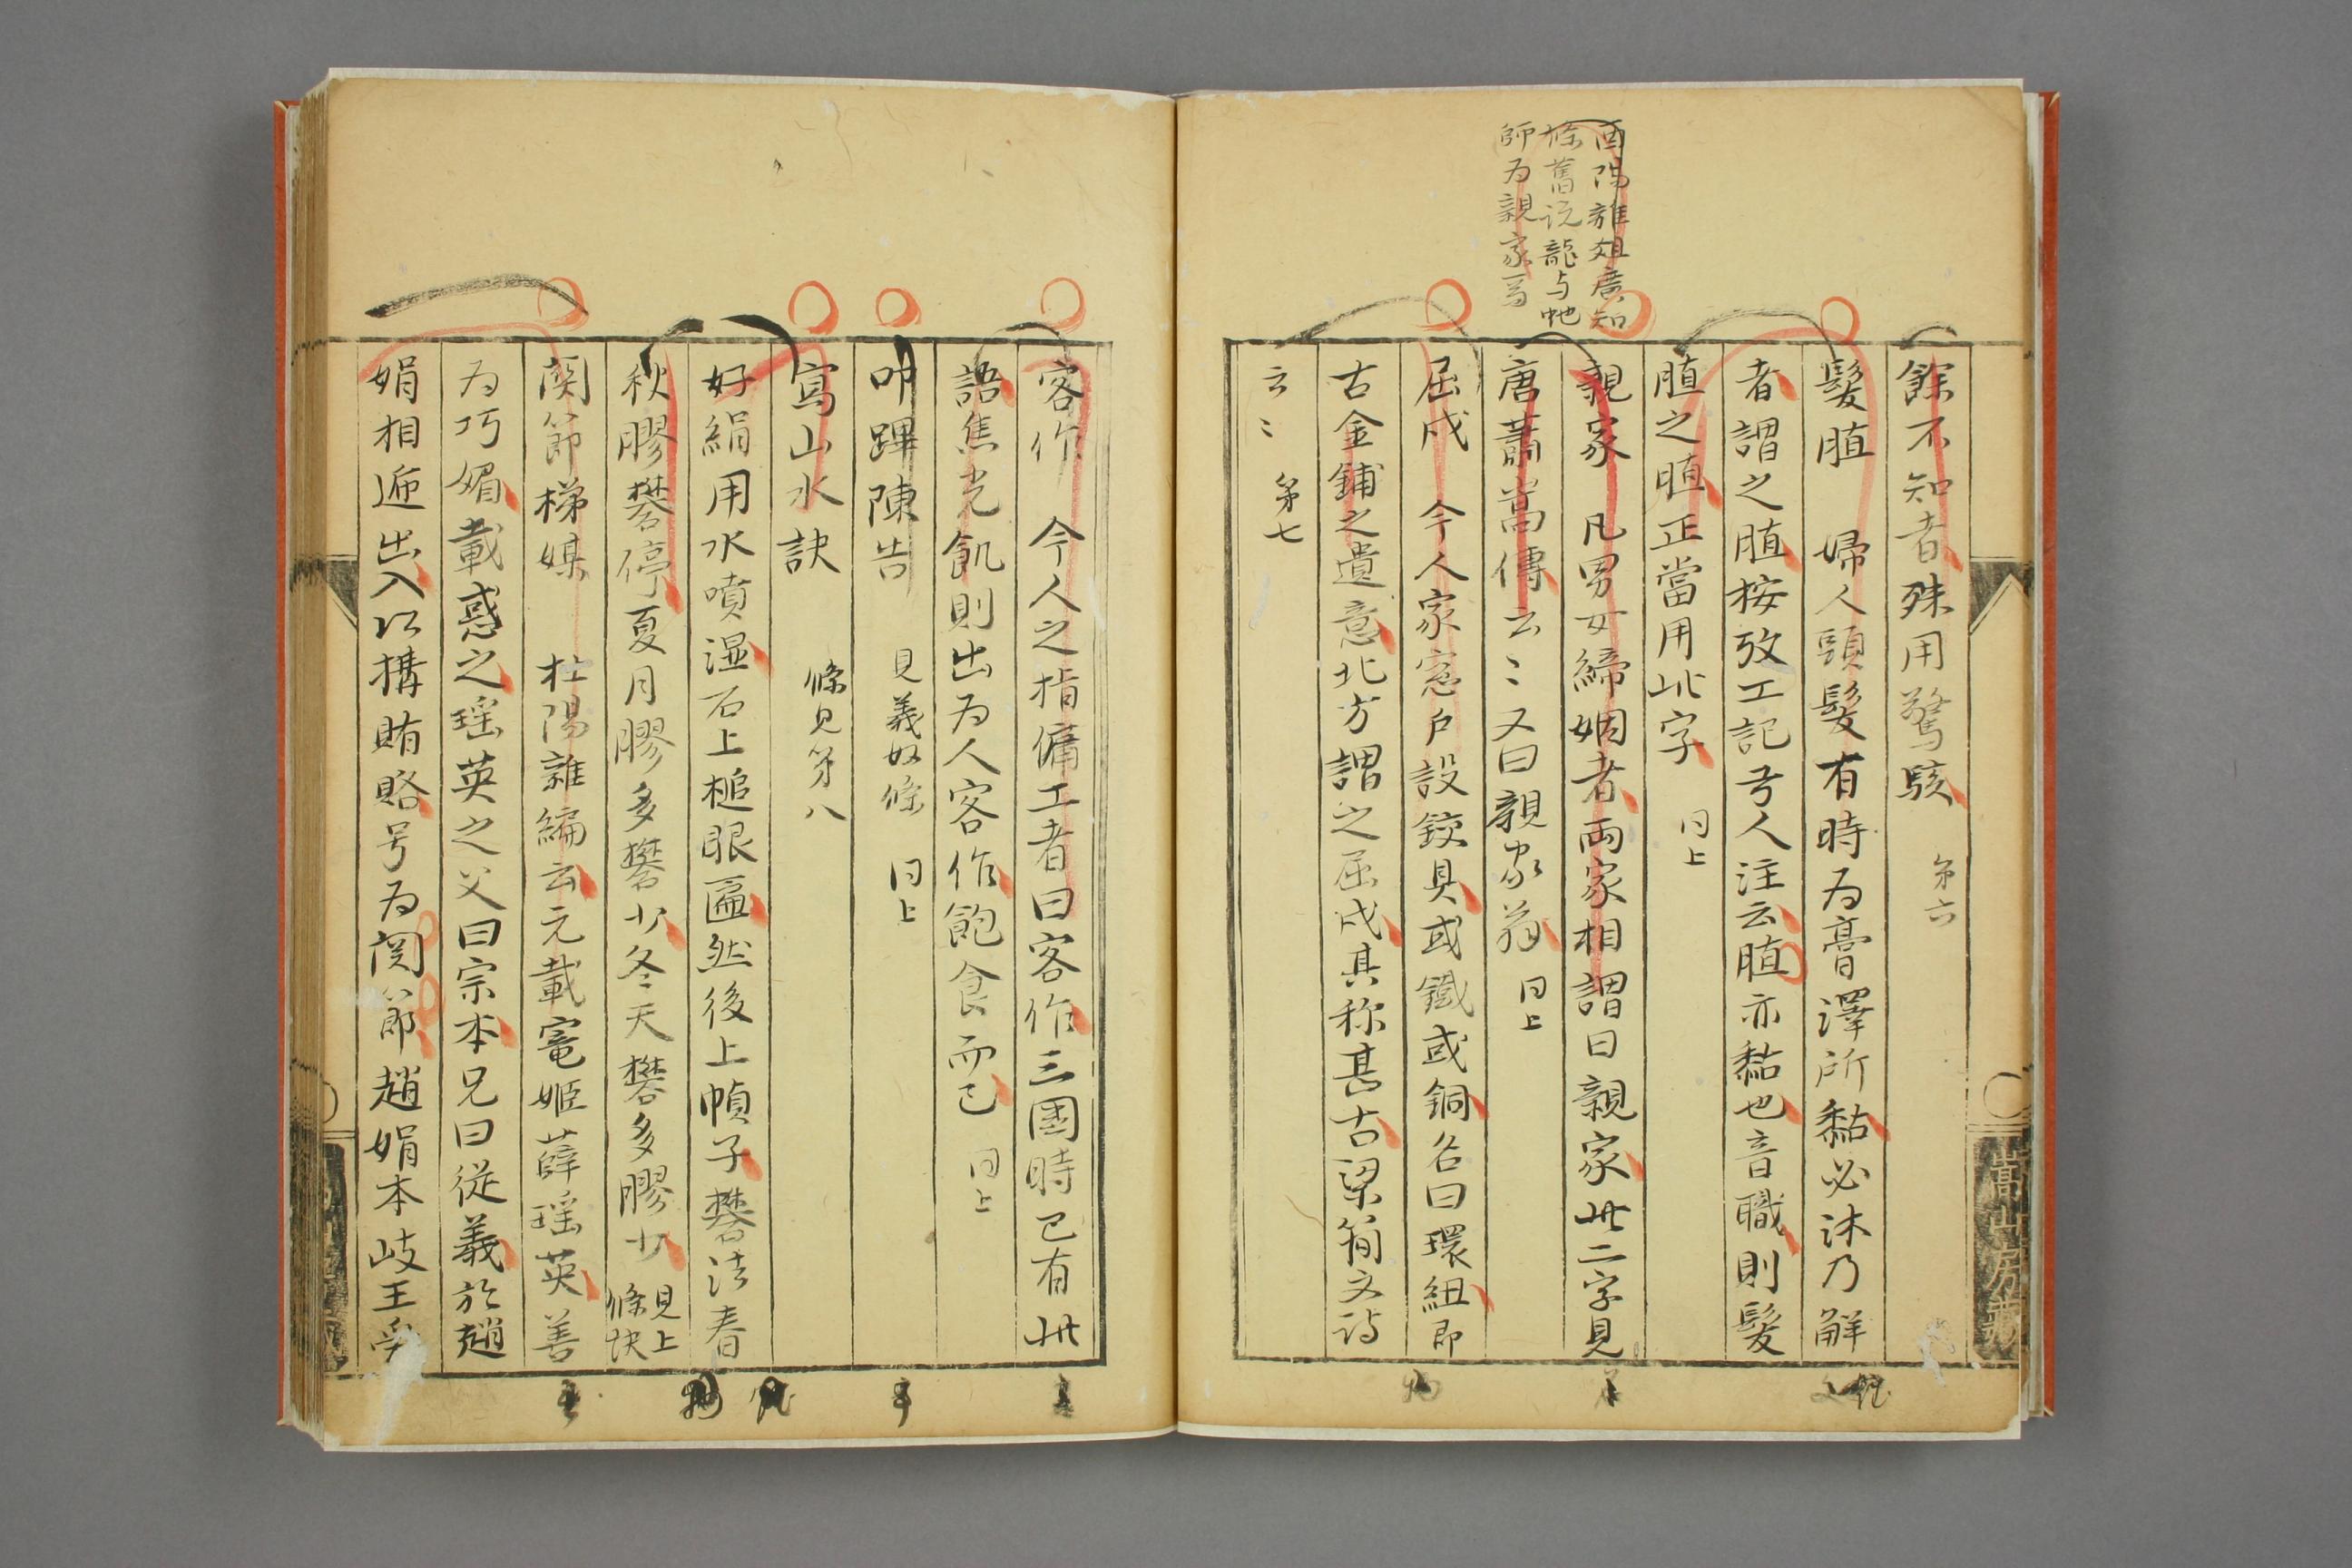 酉陽雜俎廣知
條舊説龍与虵
師为親家焉
餘不知者殊用驚駭　第六
髮䐈　婦人頭髮有時为膏澤所黏必沐乃解
者謂之䐈按攷工記弓人注云䐈亦黏也音職則髮
䐈之䐈正當用此字　同上
親家　凡男女締姻者兩家相謂曰親家此二字見
唐蕭嵩傳云〻又曰親家翁　同上
屈戍　今人家窓戶設鉸具或鐵或銅名曰環紐即
古金鋪之遺意北方謂之屈戍其称甚古梁簡文詩
云〻　第七
嵩山房藏
客作　今人之指傭工者曰客作三國時已有此
語焦光飢則出为人客作飽食而已　同上
叩䠋陳告　見義奴條　同上
寫山水訣　條見第八
好絹用水噴湿石上槌眼匾然後上幀子礬法春
秋膠礬停夏月膠多礬少冬天礬多膠少　見上條訣
関節梯媒　杜陽雜編云元載寵姬薛瑶英善
为巧媚載惑之瑶英之父曰宗本兄曰従義於趙
娟相逓出入以構賄賂号为関節趙娟本岐王愛